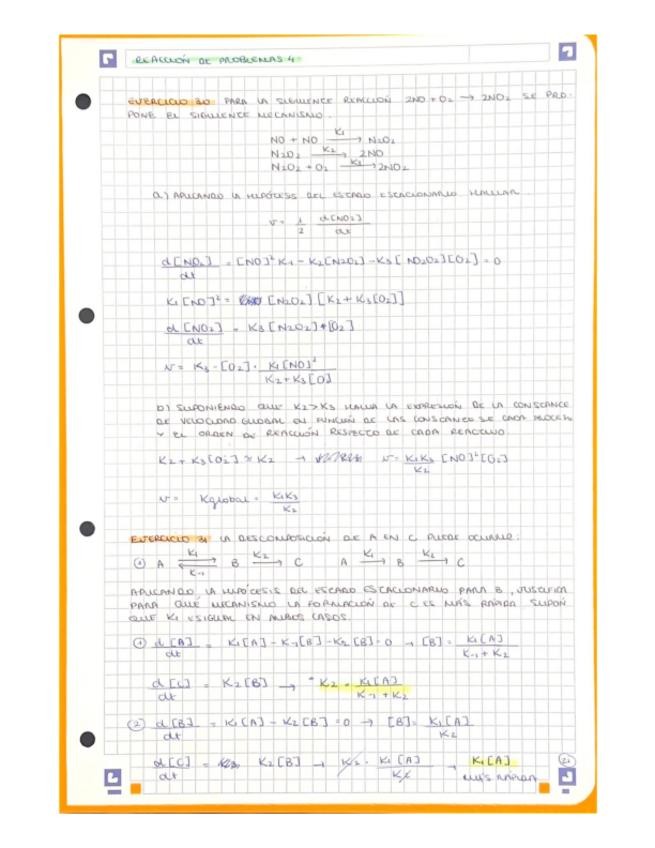 REACCIÓN DE PROBLEMAS 4
EJERCICIO 30 PARA LA SIGUIENTE REACCIÓN 2NO + O2 → 2NO2 SE PRO-
PONE EL SIGUIENTE MECANISMO.
NO + NO —K1→ N2O2
N2O2 —K2→ 2NO
N2O2 + O2 —K3→ 2NO2
a) APLICANDO LA HIPÓTESIS DEL ESTADO ESTACIONARIO HALLAR
v = 1/2 d[NO2]/dt
d[NO2]/dt = [NO]² K1 - K2[N2O2] - K3[NO2O2][O2] = 0
K1[NO]² = [N2O2][K2 + K3[O2]]
d[NO2]/dt = K3[N2O2]+[O2]
v = K3 - [O2] · K1[NO]² / K2 + K3[O]
b) SUPONIENDO QUE K2 > K3 HALLA LA EXPRESIÓN DE LA CONSTANTE
DE VELOCIDAD GLOBAL EN FUNCIÓN DE LAS CONSTANTES CADA PROCESO
Y EL ORDEN DE REACCIÓN RESPECTO DE CADA REACTIVO.
K2 + K3[O2] ≈ K2 → v = K1K3/K2 [NO]²[O2]
v = Kglobal = K1K3/K2
EJERCICIO 31 LA DESCOMPOSICIÓN DE A EN C PUEDE OCURRIR:
① A ⇌ (K1, K-1) B —K2→ C A —K1→ B —K2→ C
APLICANDO LA HIPÓTESIS DEL ESTADO ESTACIONARIO PARA B, JUSTIFICA
PARA QUÉ MECANISMO LA FORMACIÓN DE C ES MÁS RÁPIDA SUPÓN
QUE K1 ES IGUAL EN AMBOS CASOS.
① d[A]/dt = K1[A] - K-1[B] - K2[B] = 0 → [B] = K1[A] / K-1 + K2
d[C]/dt = K2[B] → K2 · K1[A] / K-1 + K2
② d[B]/dt = K1[A] - K2[B] = 0 → [B] = K1[A] / K2
d[C]/dt = K2[B] → K2 · K1[A] / K2 → K1[A]
MÁS RÁPIDA